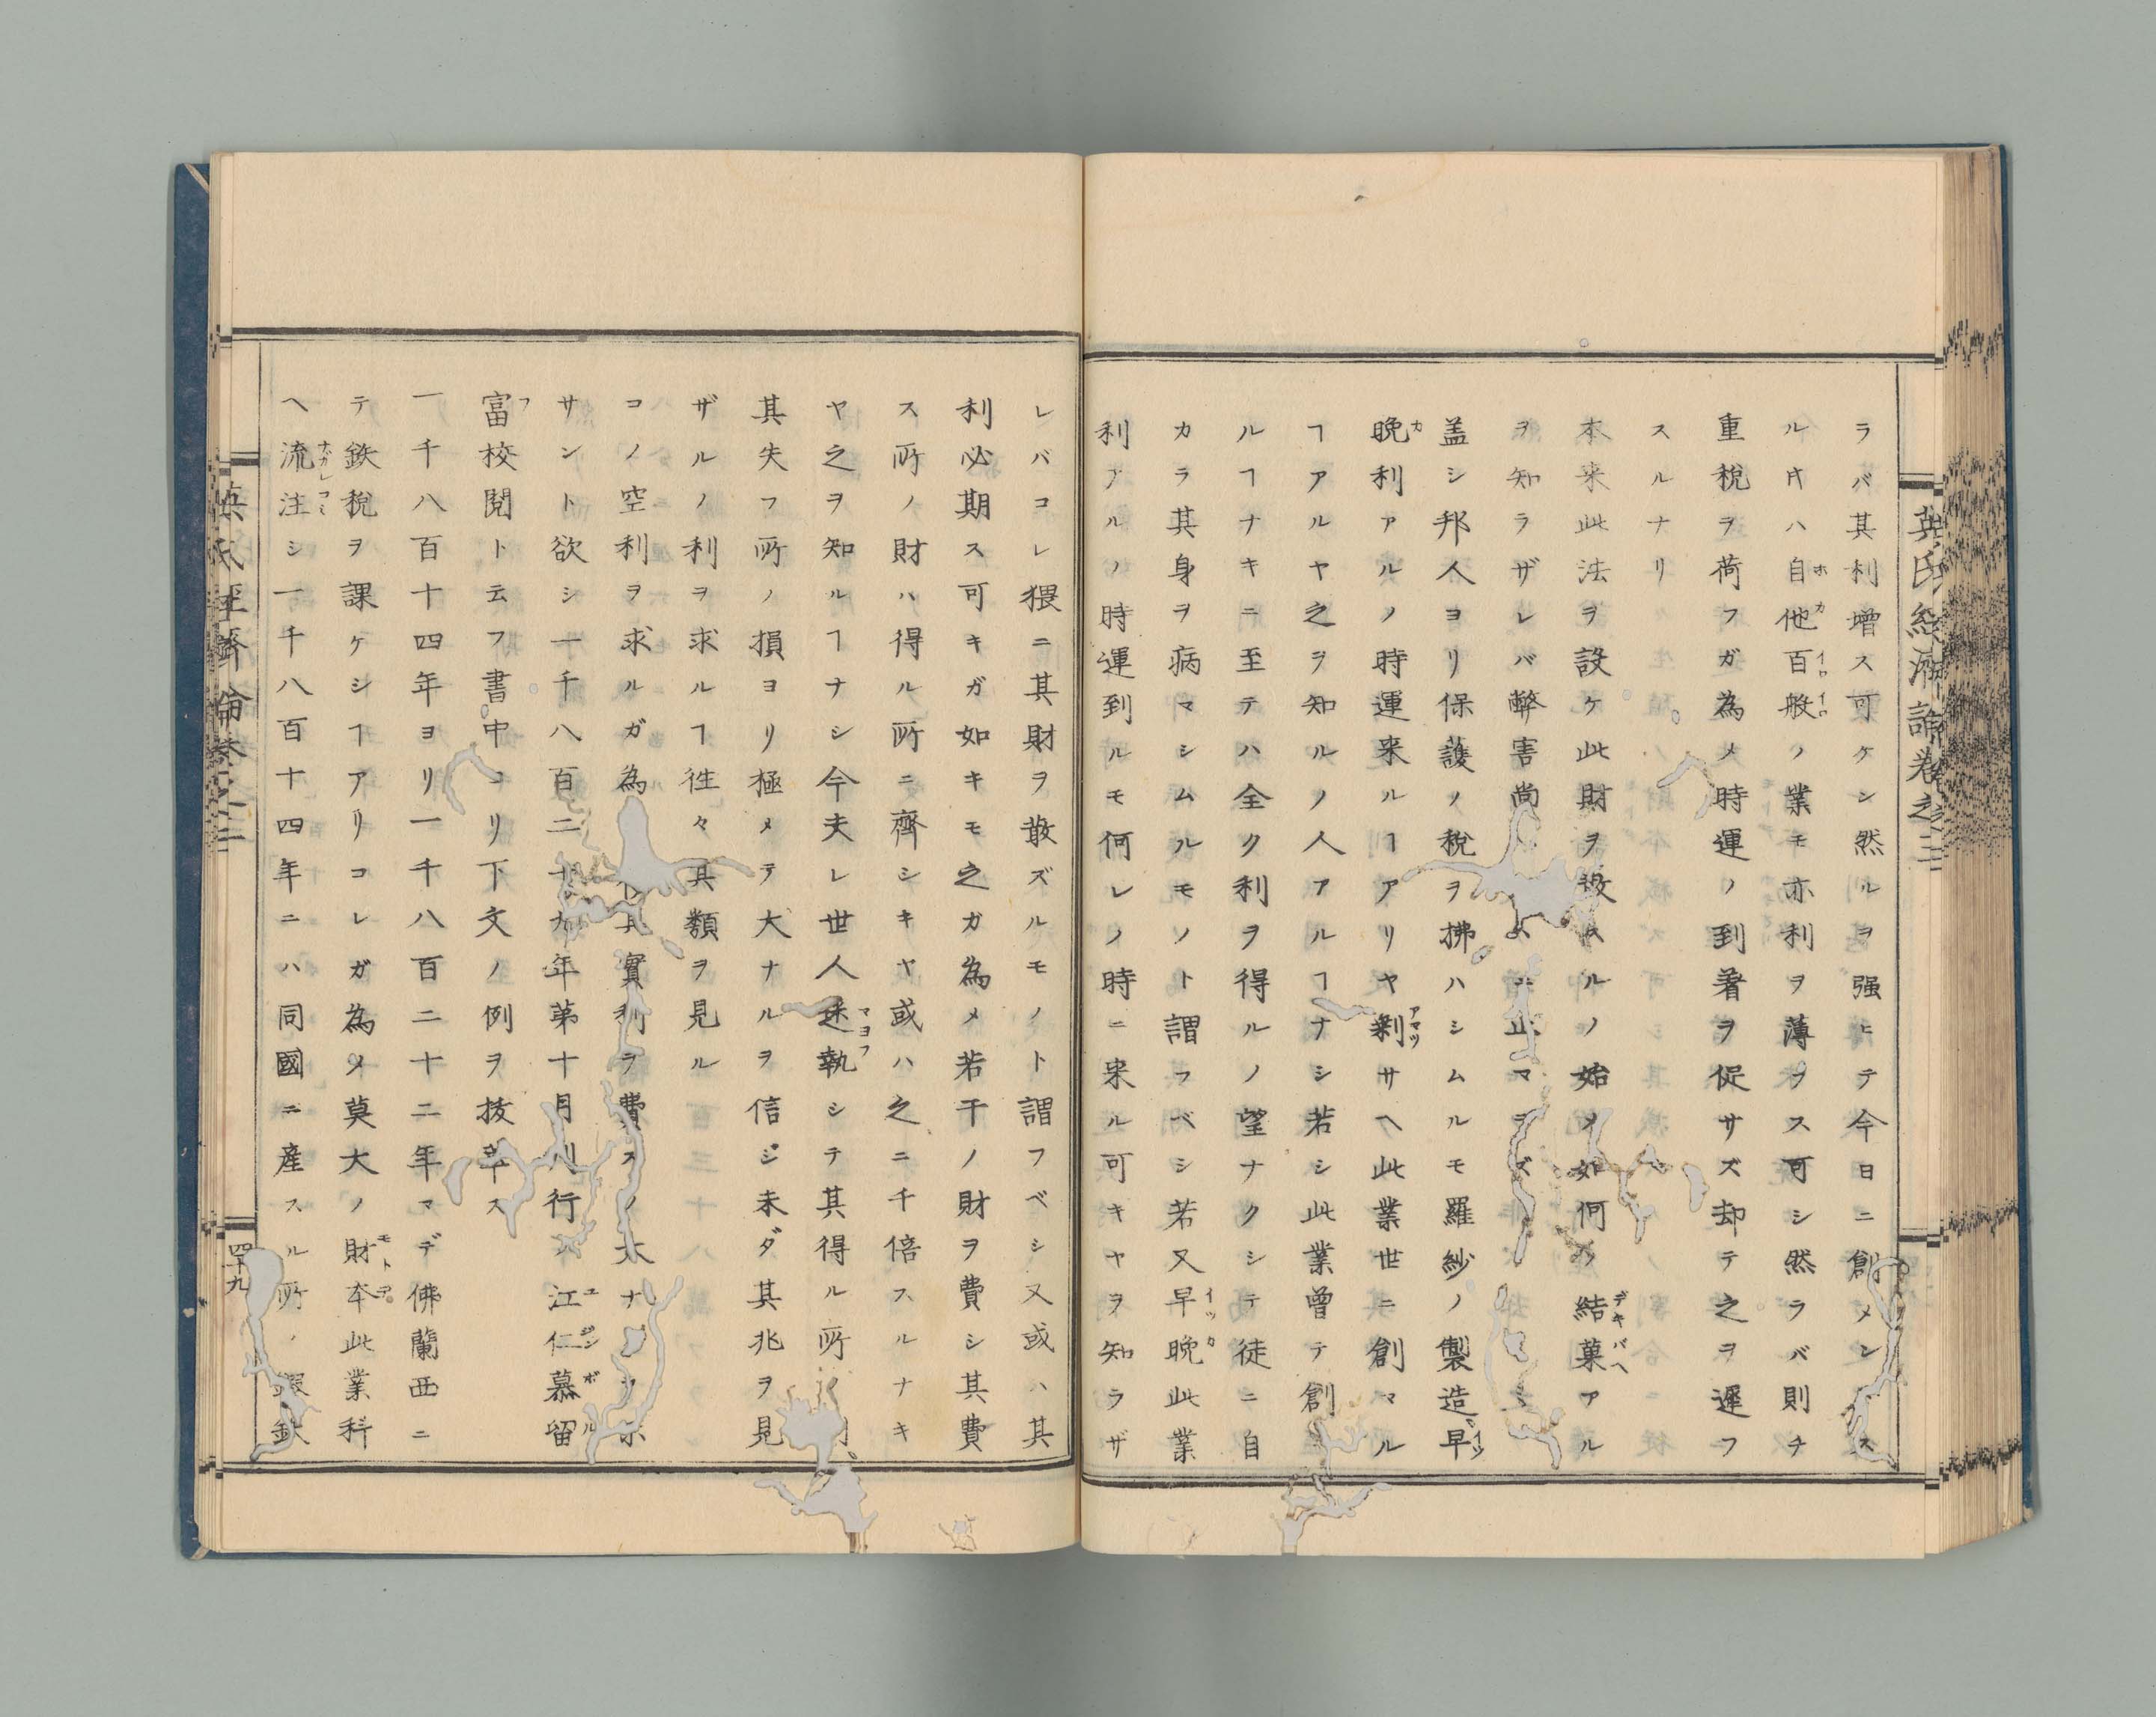 英氏経済論巻之三
ラバ其利増ス可ケシ然ルヲ強ヒテ今日ニ創メンス
ル𪜈ハ自他百般ノ業モ亦利ヲ薄フス可シ然ラバ則チ
ホカ
イロイロ
重税ヲ荷フガ為メ時運ノ到着ヲ促サズ却テ之ヲ遅フ
スルナリ
本来此法ヲ設ケ此財ヲ投スルノ始メ如何ノ結菓アル
デキバヘ
ヲ知ラザレバ弊害尚ニ止マラズ
盖シ邦人ヨリ保護ノ税ヲ拂ハシムルモ羅紗ノ製造早
イツ
晩利アルノ時運来ルヿアリヤ剰サヘ此業世ニ創マル
カ
アマツ
ヿアルヤ之ヲ知ルノ人アルヿナシ若シ此業曽テ創
ルヿナキニ至テハ全ク利ヲ得ルノ望ナクシテ徒ニ自
カラ其身ヲ病マシムルモノト謂フベシ若又早晩此業
イツカ
利アルノ時運到ルモ何レノ時ニ来ル可キヤヲ知ラザ
レバコレ猥ニ其財ヲ散ズルモノト謂フベシ又或ハ其
利必期ス可キガ如キモ之ガ為メ若干ノ財ヲ費シ其費
ス所ノ財ハ得ル所ニ齊シキヤ或ハ之ニ千倍スルナキ
ヤ之ヲ知ルヿナシ今夫レ世人迷執シテ其得ル所
マヨフ
其失フ所ノ損ヨリ極メテ大ナルヲ信ジ未ダ其兆ヲ見
ザルノ利ヲ求ルヿ徃々其類ヲ見ル
コノ空利ヲ求ルガ為其實利ヲ費スノ大ナ
サント欲シ一千八百二十九年第十月刊行江仁慕留
エジンボル
富校閲ト云フ書中ヨリ下文ノ例ヲ抜萃ス
フ
一千八百十四年ヨリ一千八百二十二年マデ佛蘭西ニ
テ鉄税ヲ課ケシヿアリコレガ為メ莫大ノ財本此業科
モトヲ
ヘ流注シ一千八百十四年ニハ同國ニ産スル所ノ鉄
ナガレコミ
英氏経済論巻之三
四十九